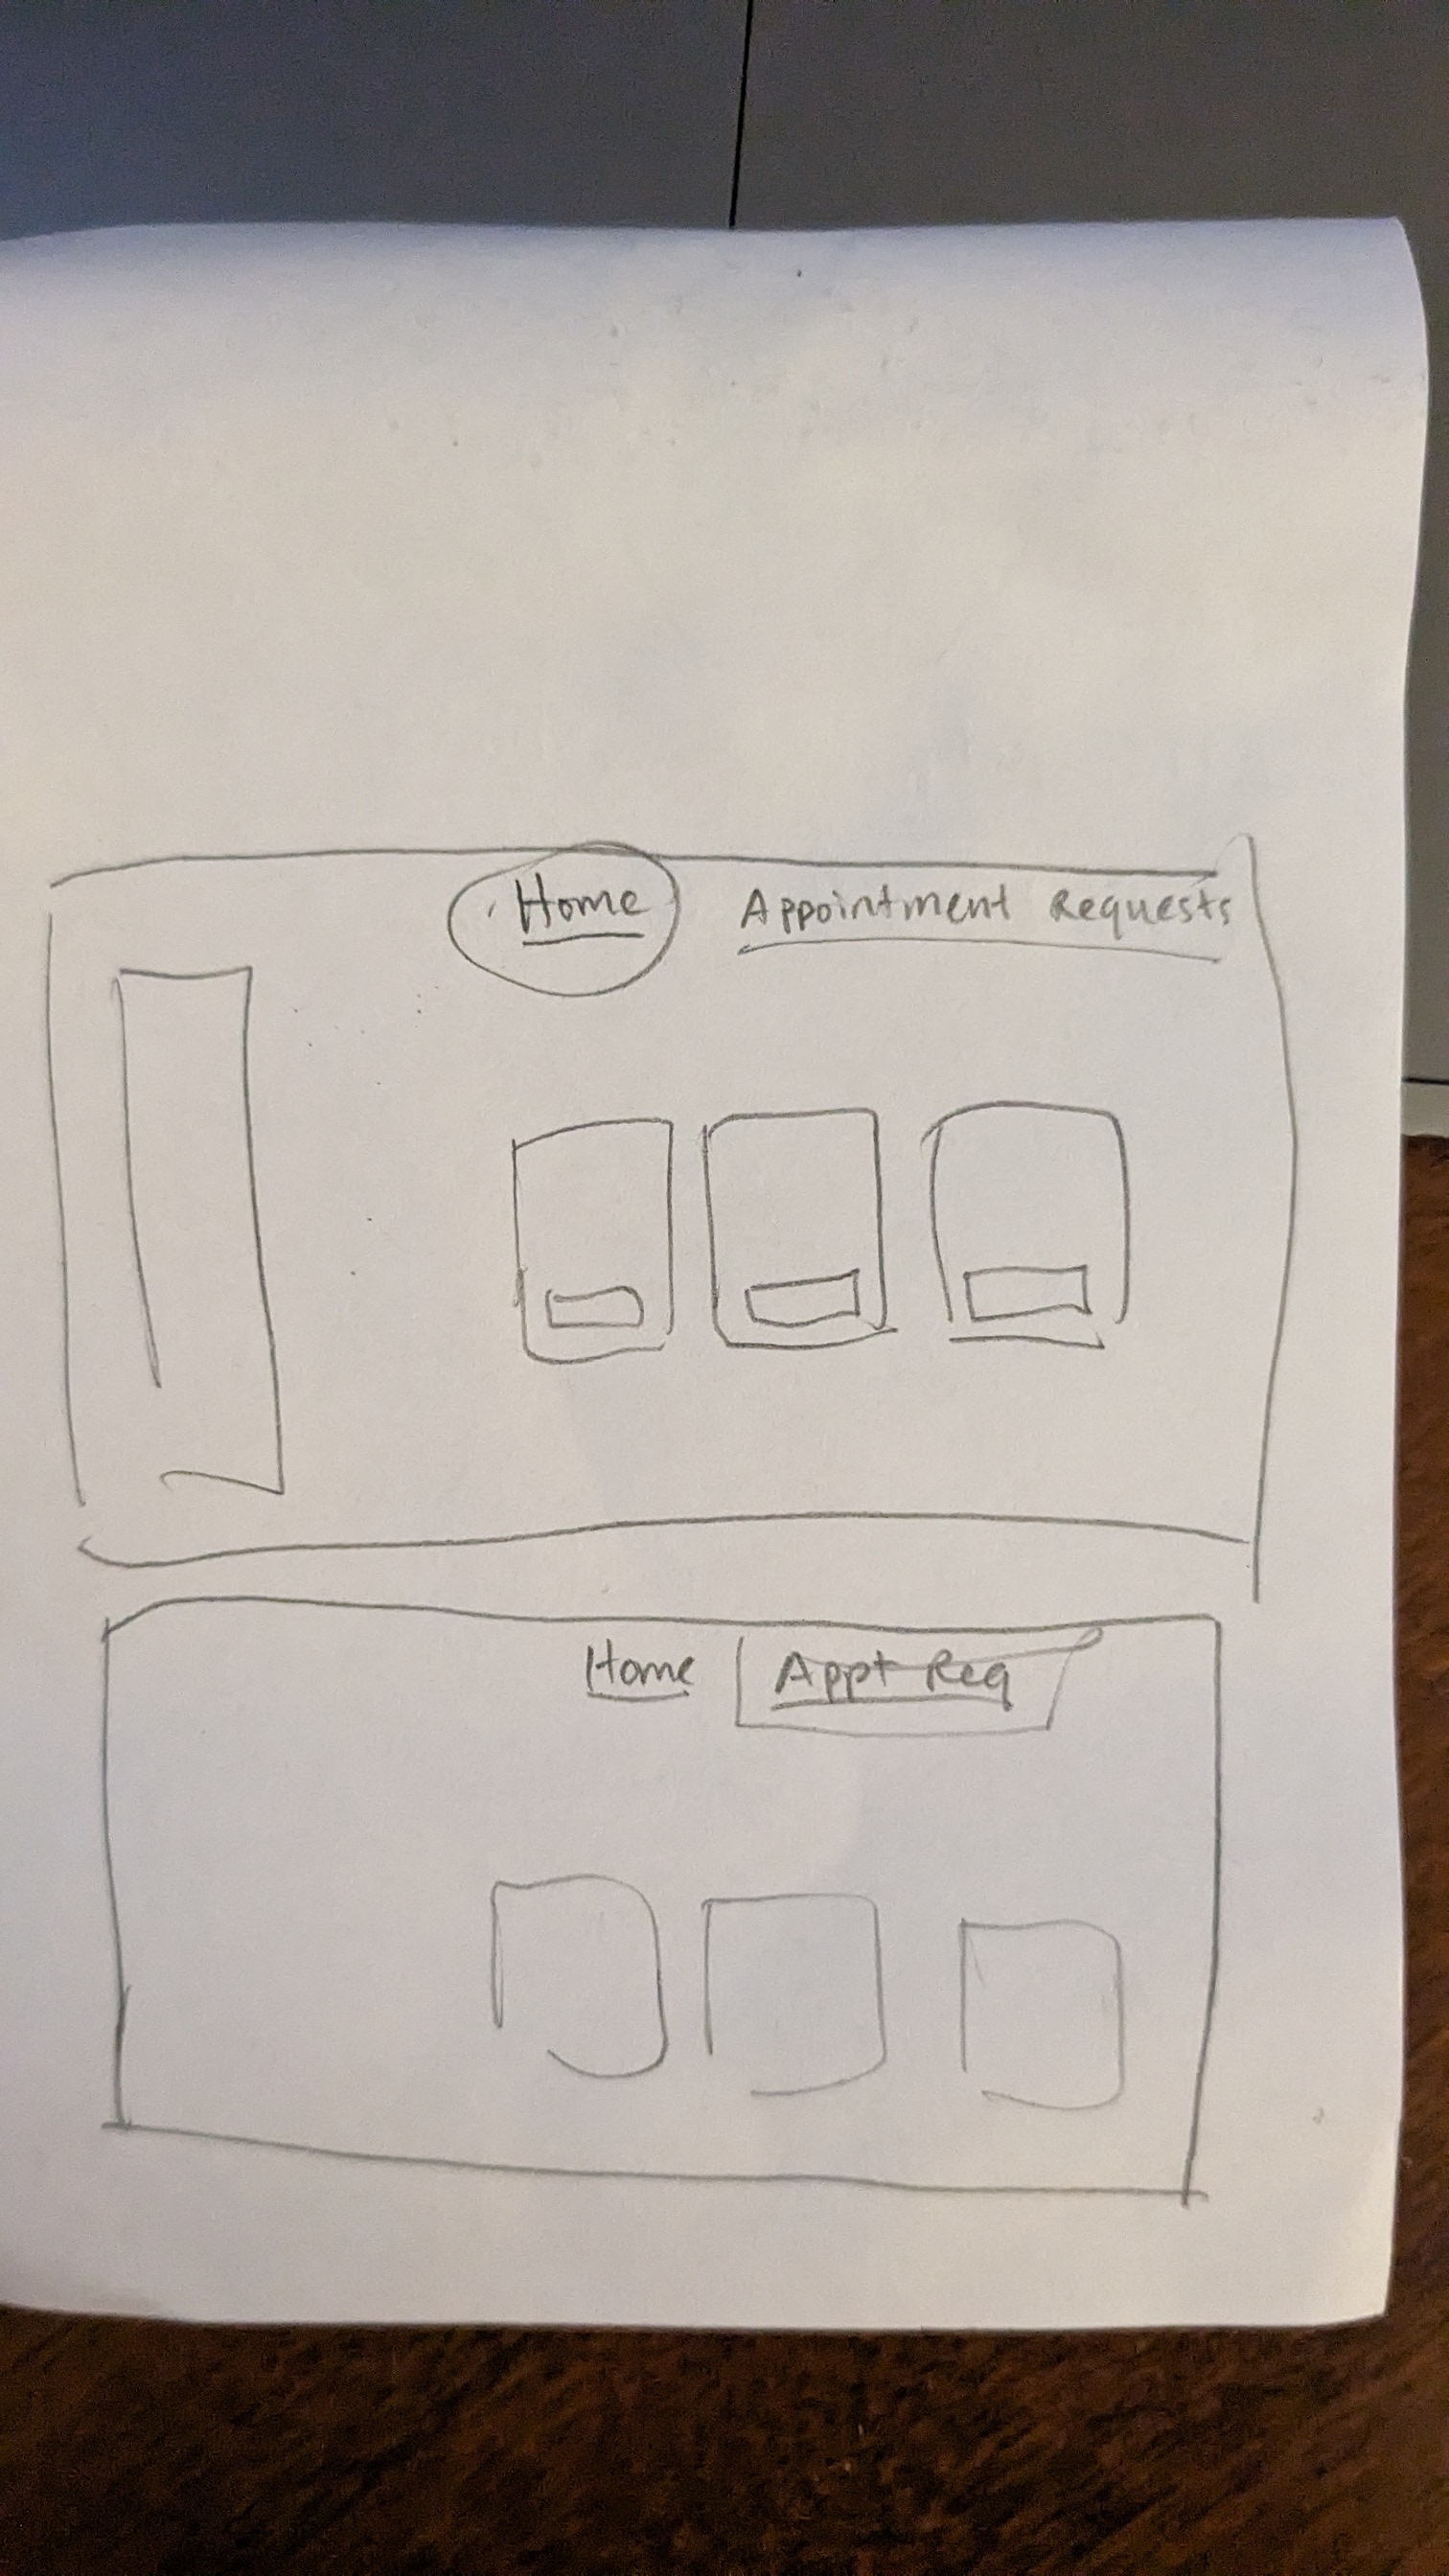 Home Appointment Requests
Home Appt Req